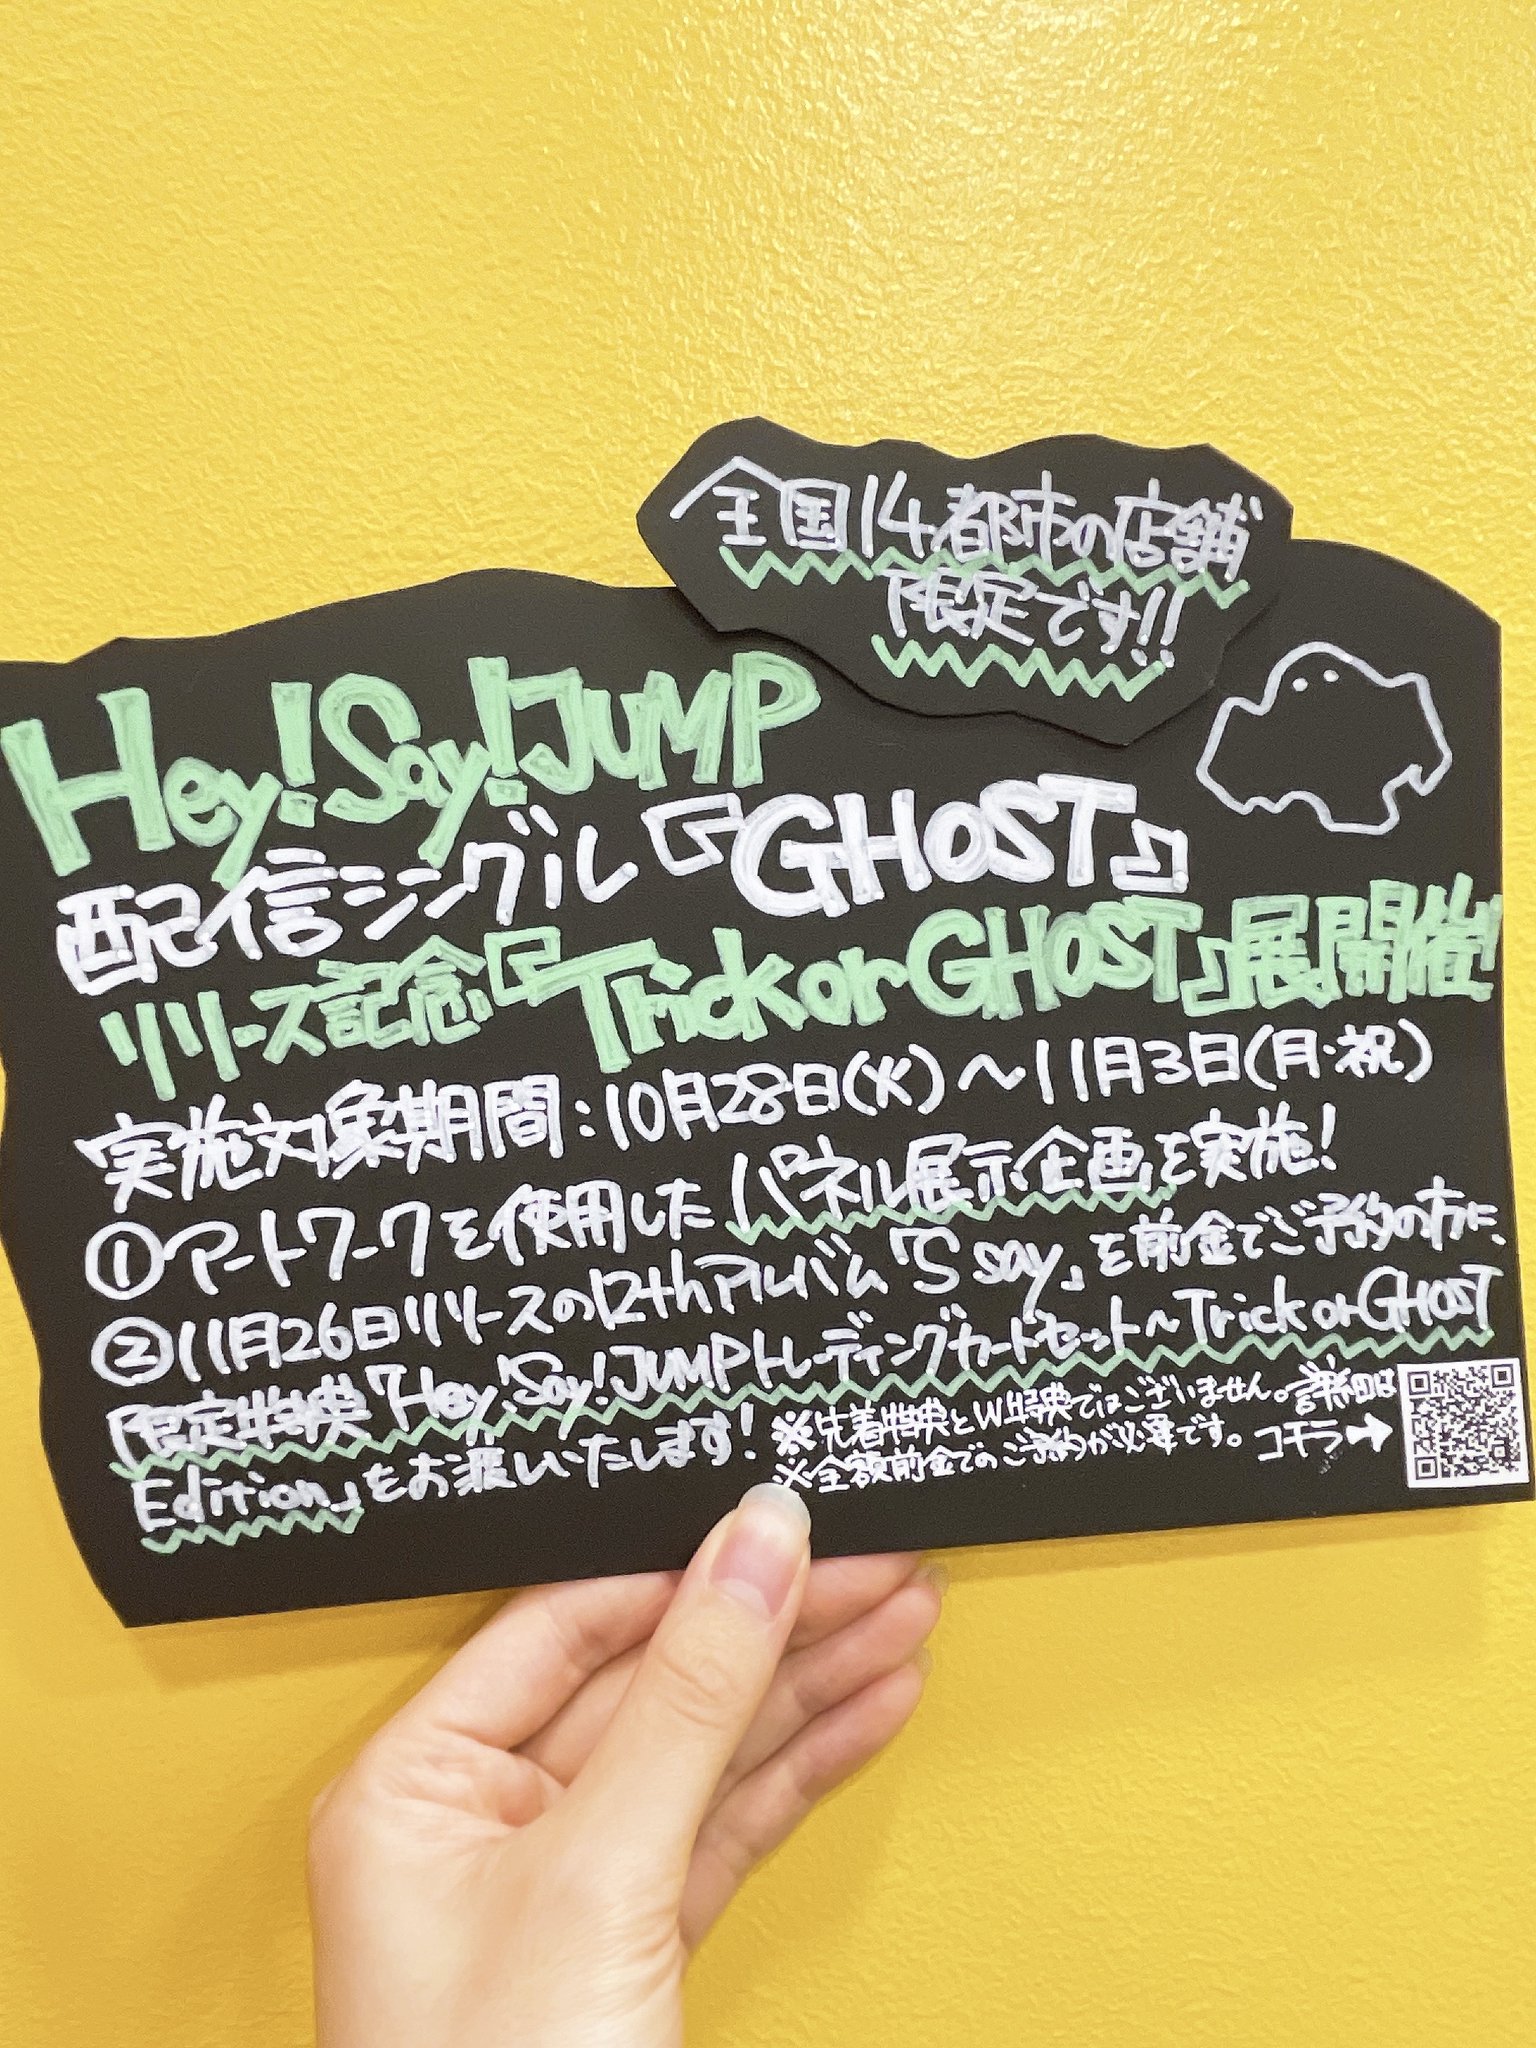 全国14都市の店舗
限定です!!
Hey!Say!JUMP
配信シングル『GHOST』
リリース記念『Trick or GHOST』展開催!
実施対象期間:10月28日(火)～11月3日(月・祝)
①アートワークを使用したパネル展示企画を実施!
②11月26日リリースの12thアルバム「S say」を前金でご予約の方に、
限定特典「Hey!Say!JUMPトレーディングカードセット～Trick or GHOST
Edition」をお渡しいたします!
※先着特典とW特典ではございません。
※全額前金でのご予約が必要です。
詳細は
コチラ→